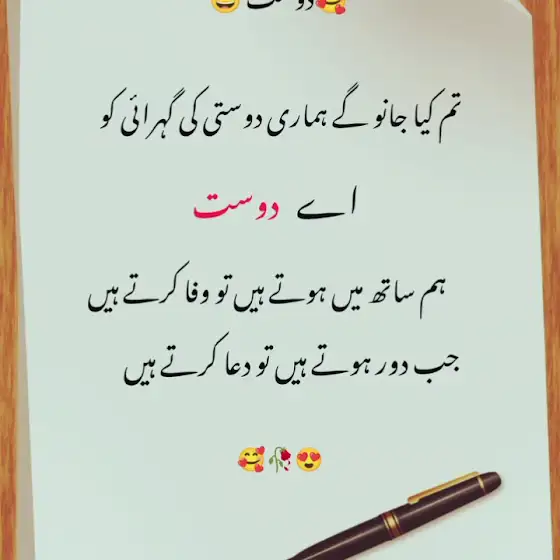 🥰دوست😍
تم کیا جانو گے ہماری دوستی کی گہرائی کو
اے دوست
ہم ساتھ میں ہوتے ہیں تو وفا کرتے ہیں
جب دور ہوتے ہیں تو دعا کرتے ہیں
🥰🥀😍